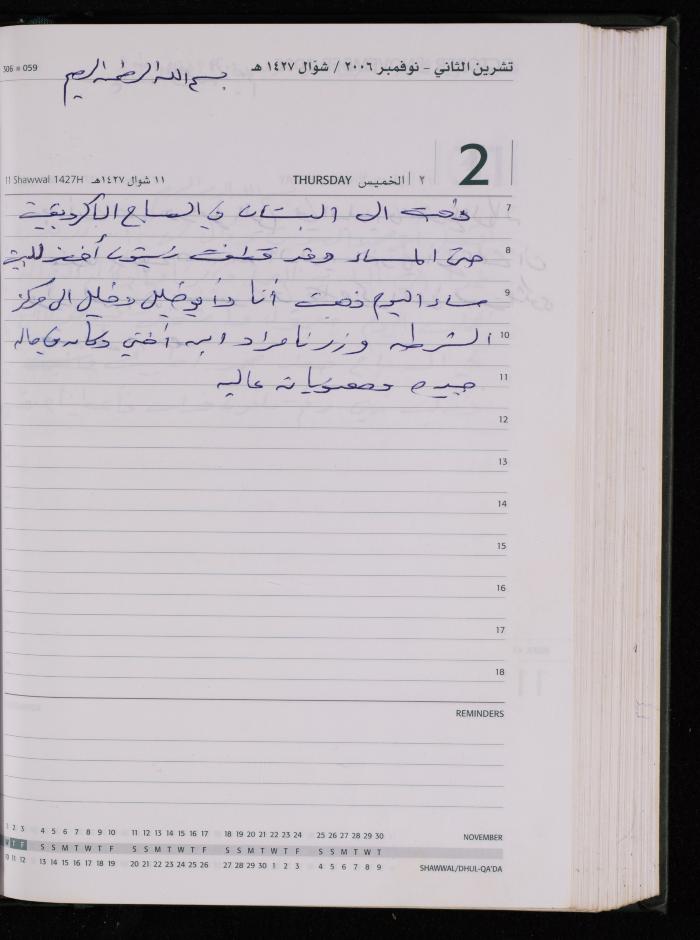 306 = 059
تشرين الثاني - نوفمبر ٢٠٠٦ / شوّال ١٤٢٧ هـ
بسم الله الرحمن الرحيم
2
11 Shawwal 1427H ١١ شوال ١٤٢٧هـ THURSDAY الخميس ٢
7 ذهبت الى البستان في الصباح الباكر وبقيت
8 حتى المساء وقد قطفت زيتون أخضر للبيت
9 مساء اليوم ذهبت أنا وأبو خليل وخليل الى مركز
10 الشرطه وزرنا مراد ابن أختي وكان في حاله
11 جيده ومعنويات عاليه
12
13
14
15
16
17
18
REMINDERS
1 2 3 4 5 6 7 8 9 10 11 12 13 14 15 16 17 18 19 20 21 22 23 24 25 26 27 28 29 30 NOVEMBER
W T F S S M T W T F S S M T W T F S S M T W T F S S M T W T
10 11 12 13 14 15 16 17 18 19 20 21 22 23 24 25 26 27 28 29 30 1 2 3 4 5 6 7 8 9 SHAWWAL/DHUL-QA'DA